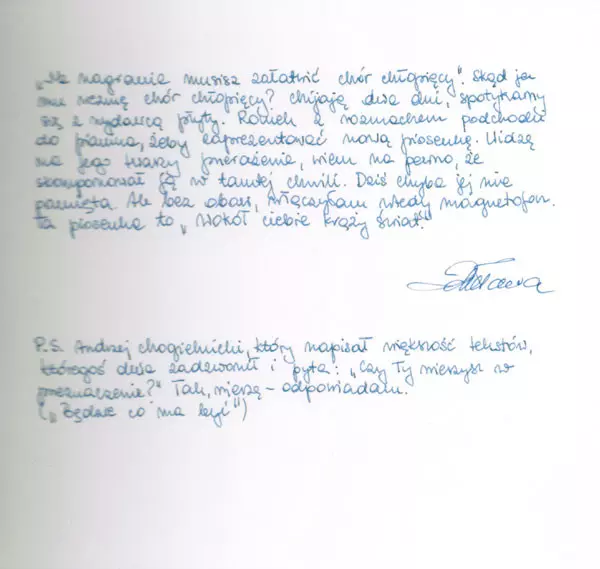 „Na nagranie musisz załatwić chór chłopięcy". Skąd ja
mu wezmę chór chłopięcy? Mijają dwa dni, spotykamy
się z wydawcą płyty. Romek z rozmachem podchodzi
do pianina, żeby zaprezentować nową piosenkę. Widzę
na jego twarzy przerażenie, wiem na pewno, że
skomponował ją w tamtej chwili. Dziś chyba jej nie
pamięta. Ale bez obaw, włączyłam wtedy magnetofon.
Ta piosenka to „Wokół ciebie krąży świat".
P.S. Andrzej Mogielnicki, który napisał większość tekstów,
któregoś dnia zadzwonił i pyta: „Czy Ty wierzysz w
przeznaczenie?" Tak, wierzę – odpowiadam.
(„Będzie co ma być")